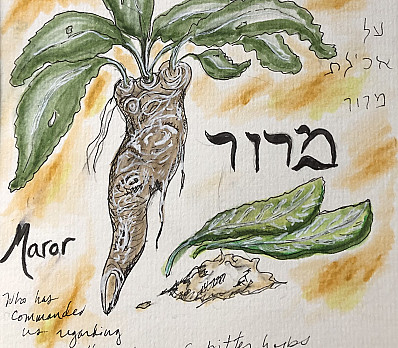 על
אכילת
מרור
מרור
Maror
Who has
commanded
us regarding
bitter herbs